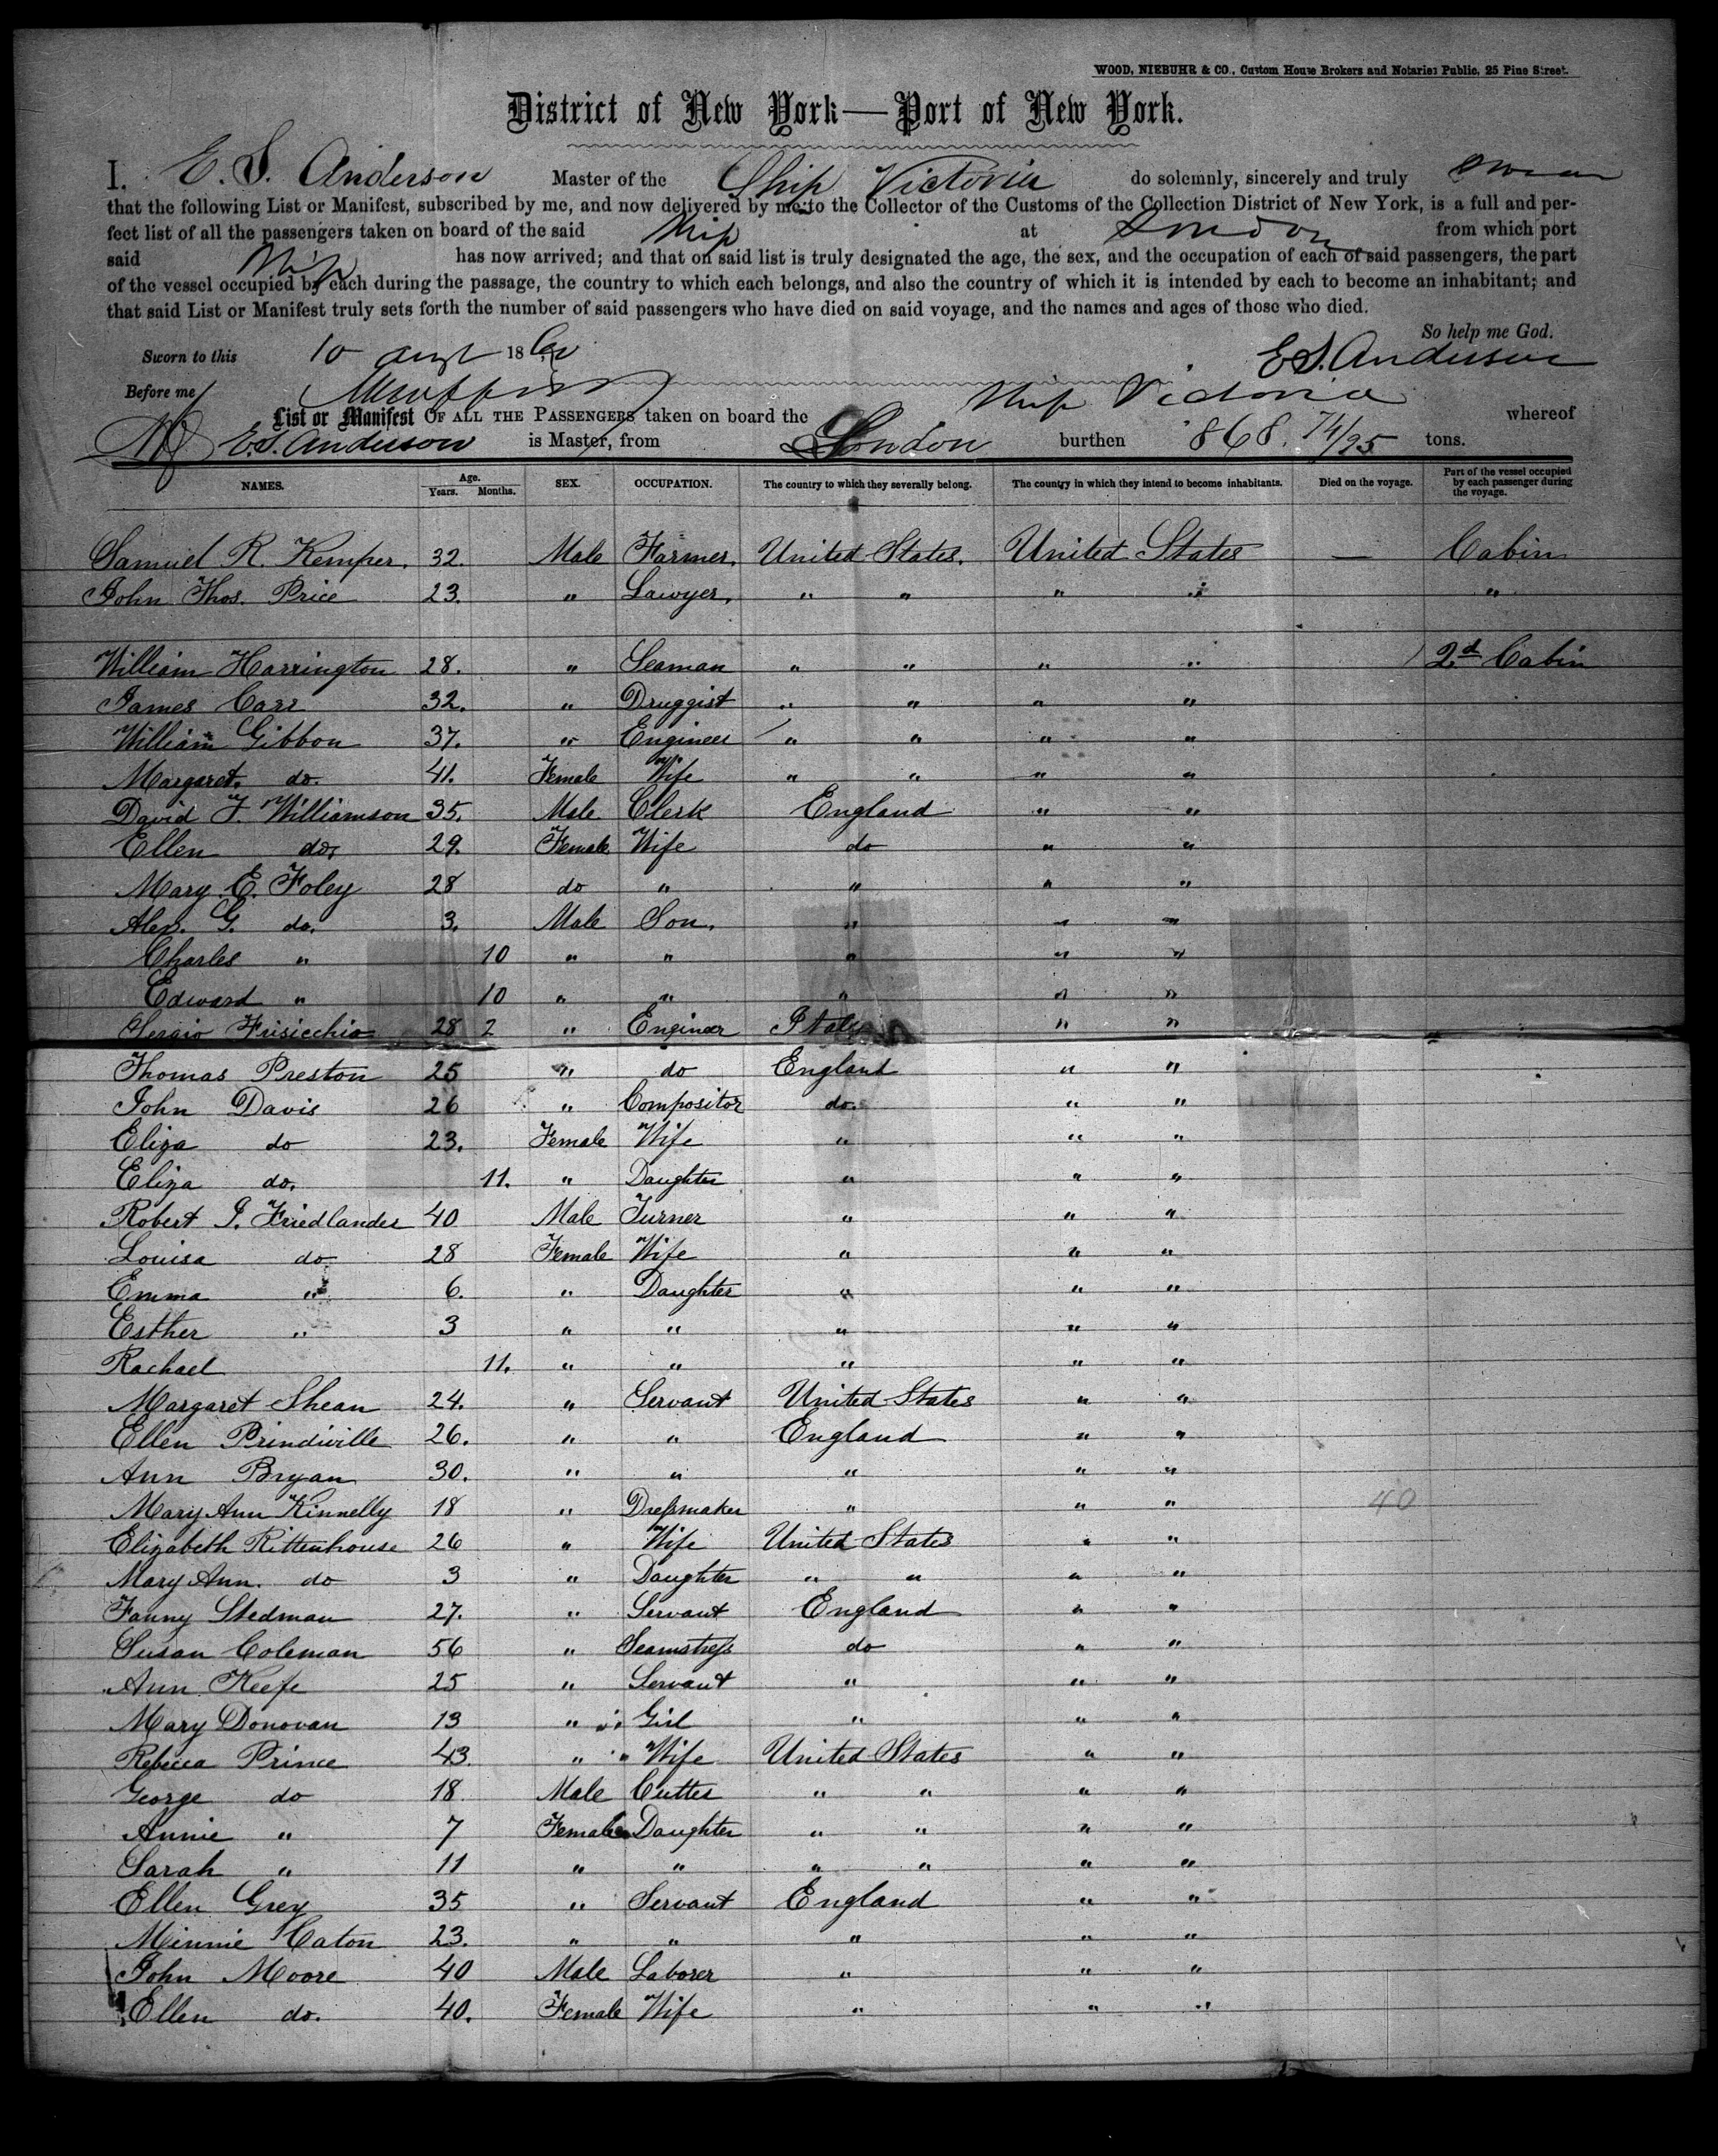 WOOD, NIEBUHR & CO., Custom House Brokers and Notaries Public, 25 Pine Street.
District of New York—Port of New York.
I. E. S. Anderson Master of the Ship Victoria do solemnly, sincerely and truly swear
that the following List or Manifest, subscribed by me, and now delivered by me to the Collector of the Customs of the Collection District of New York, is a full and per-
fect list of all the passengers taken on board of the said Ship at London from which port
said Ship has now arrived; and that on said list is truly designated the age, the sex, and the occupation of each of said passengers, the part
of the vessel occupied by each during the passage, the country to which each belongs, and also the country of which it is intended by each to become an inhabitant; and
that said List or Manifest truly sets forth the number of said passengers who have died on said voyage, and the names and ages of those who died.
So help me God.
Sworn to this 10 augt 18 E S. Anderson
Before me
List or Manifest OF ALL THE PASSENGERS taken on board the Ship Victoria whereof
E. S. Anderson is Master, from London burthen 868. 74/95 tons.
NAMES. Age. Years. Months. SEX. OCCUPATION. The country to which they severally belong. The country in which they intend to become inhabitants. Died on the voyage. Part of the vessel occupied by each passenger during the voyage.
Samuel R. Kemper. 32. Male Farmer. United States. United States — Cabin
John Thos. Price 23. " Lawyer. " " " " "
William Harrington 28. " Seaman " " " " 2d Cabin
James Carr 32. " Druggist " " " "
William Gibbon 37. " Engineer " " " "
Margaret do. 41. Female Wife " " " "
David F. Williamson 35. Male Clerk England " "
Ellen do. 29. Female Wife do " "
Mary E. Foley 28 do " " " "
Alex. G. do. 3. Male Son. " " "
Charles " 10 " " " " "
Edward " 10 " " " " "
Sergio Frisicchio 28 2 " Engineer Italy " "
Thomas Preston 25 " do England " "
John Davis 26 " Compositor do. " "
Eliza do 23. Female Wife " " "
Eliza do. 11. " Daughter " " "
Robert J. Friedlander 40 Male Turner " " "
Louisa do 28 Female Wife " " "
Emma " 6. " Daughter " " "
Esther " 3 " " " " "
Rachael 11. " " " " "
Margaret Shean 24. " Servant United States " "
Ellen Prindiville 26. " " England " "
Ann Bryan 30. " " " " "
Mary Ann Kinnelly 18 " Dressmaker " " " 40
Elizabeth Rittenhouse 26 " Wife United States " "
Mary Ann. do 3 " Daughter " " " "
Fanny Stedman 27. " Servant England " "
Susan Coleman 56 " Seamstress do " "
Ann Keefe 25 " Servant " " "
Mary Donovan 13 " Girl " " "
Rebecca Prince 43. " Wife United States " "
George do 18. Male Cutter " " " "
Annie " 7 Female Daughter " " " "
Sarah " 11 " " " " " "
Ellen Grey 35 " Servant England " "
Minnie Caton 23. " " " " "
John Moore 40 Male Laborer " " "
Ellen do. 40. Female Wife " " "